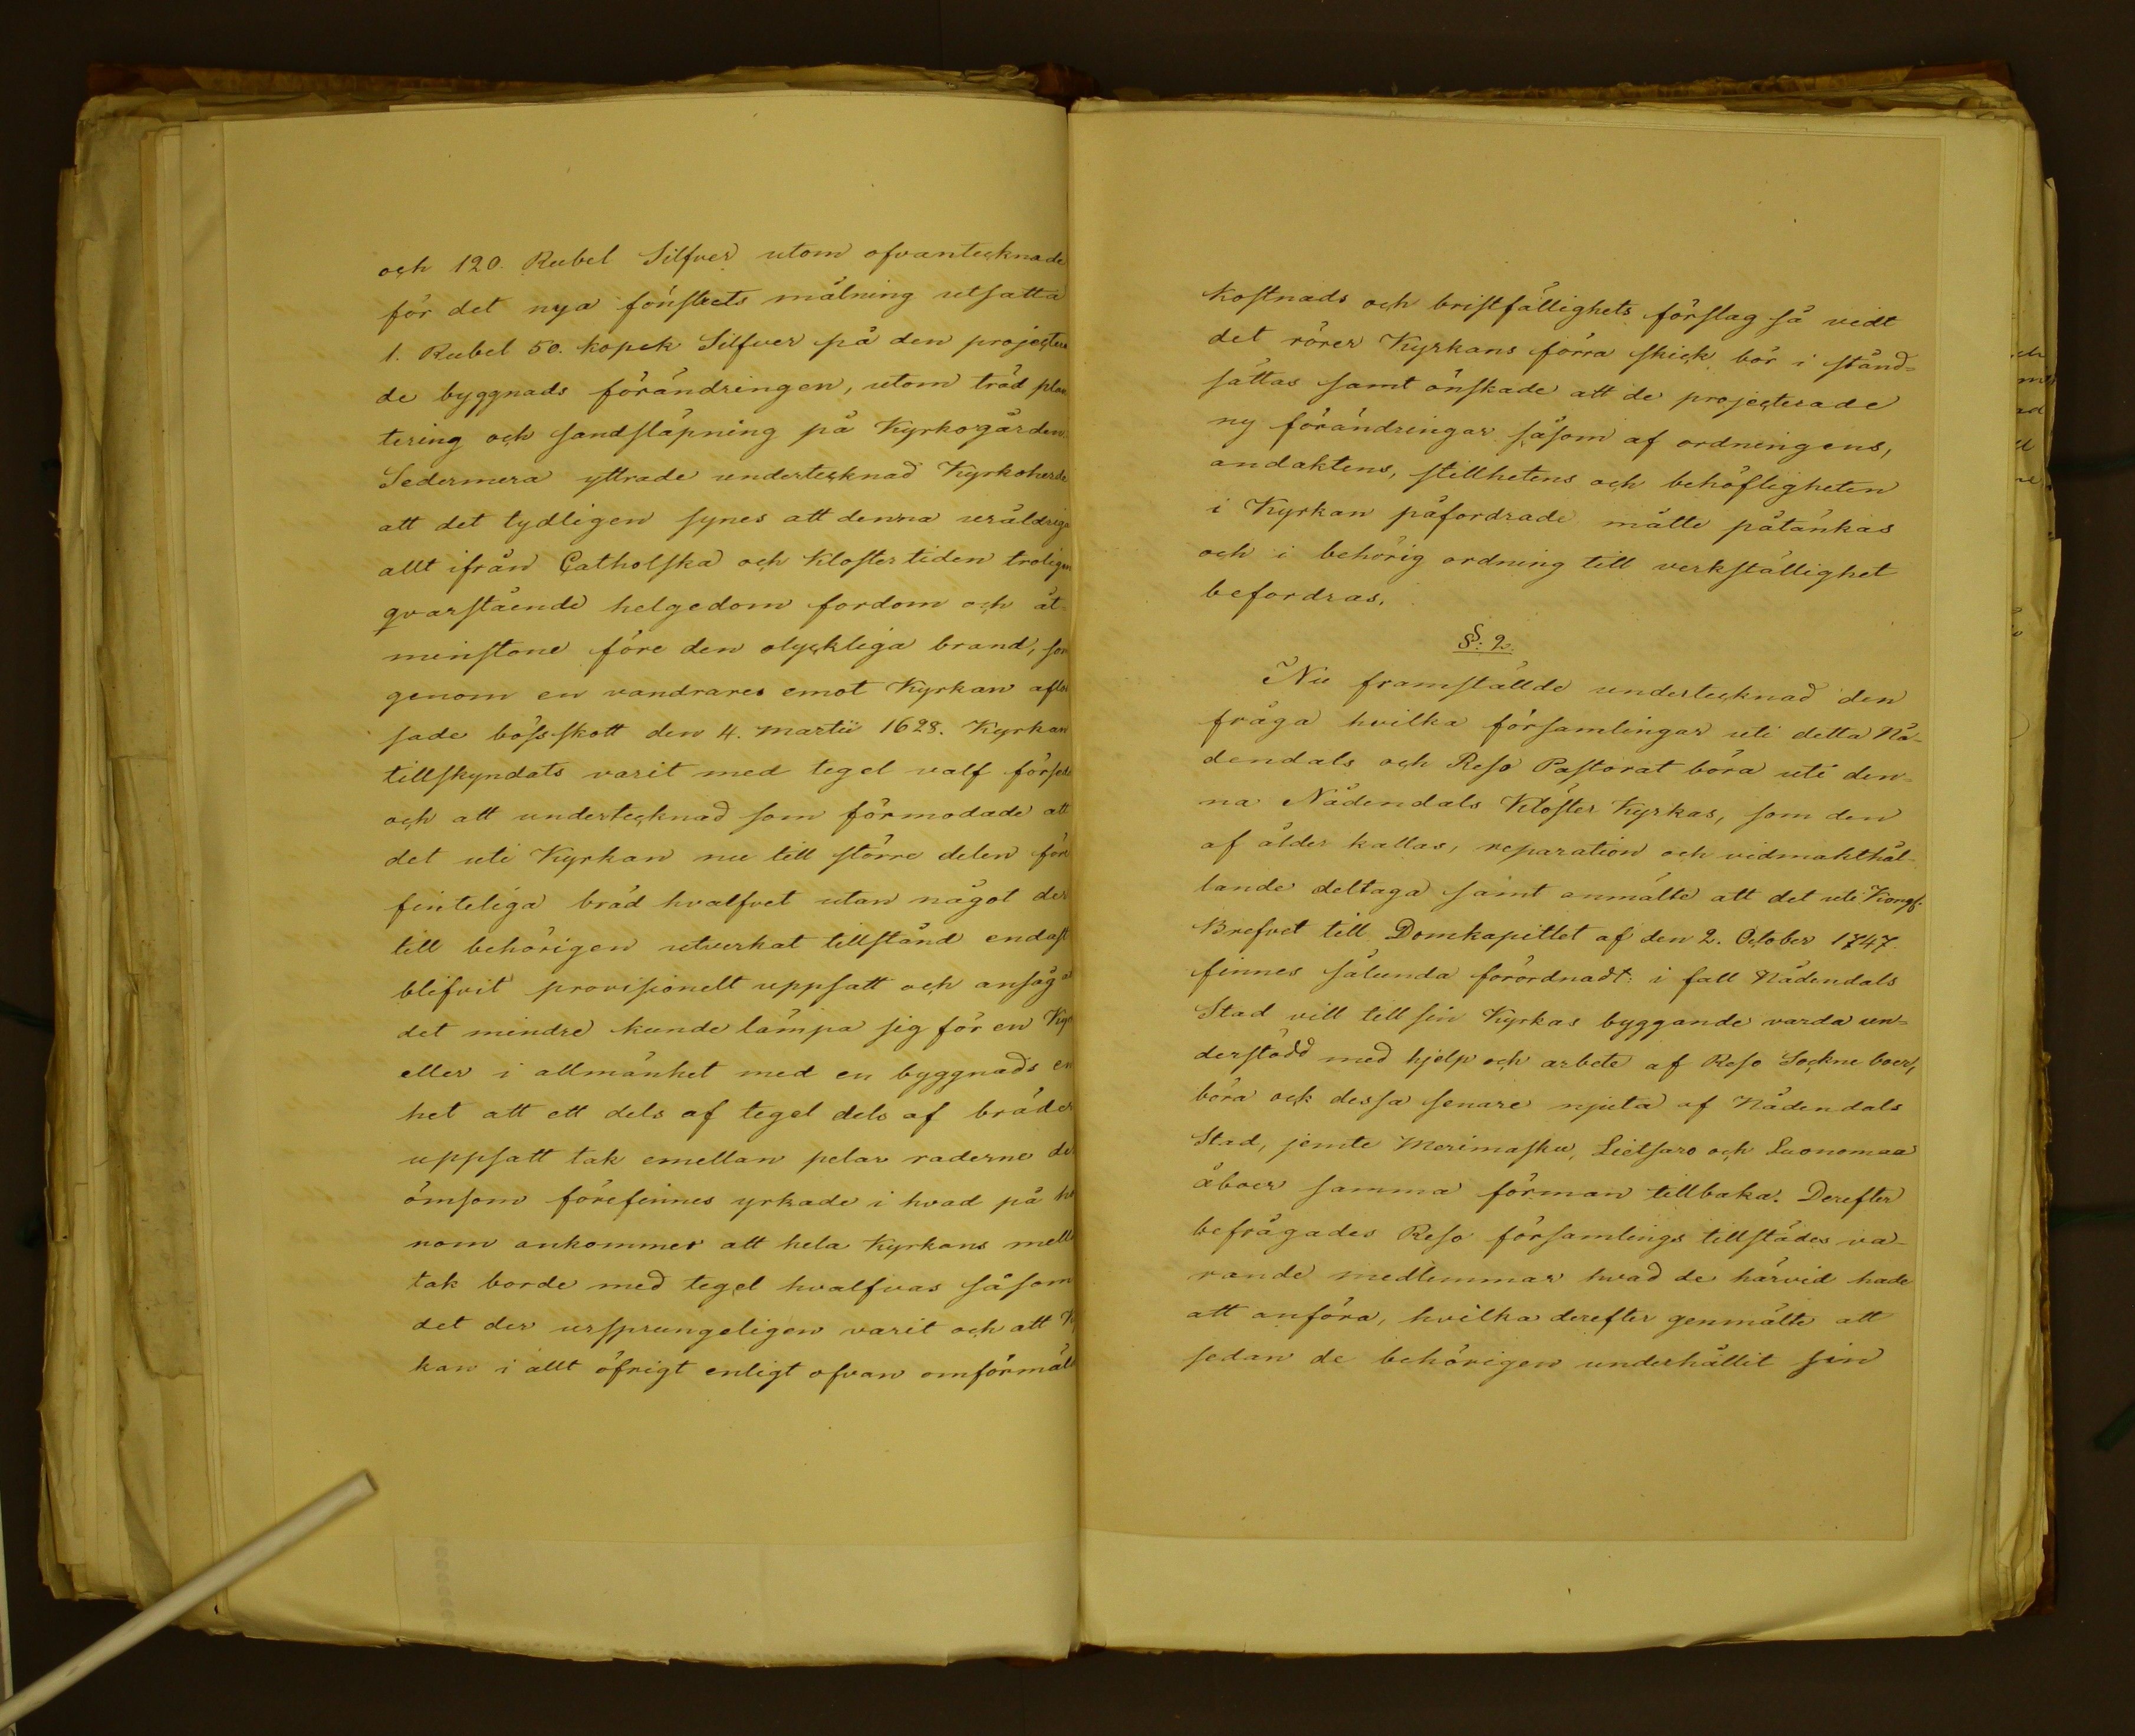 och 120. Rubel Silfver utom ofvantecknade
för det nya fönstrets målning utsatta
1. Rubel 50. kopek Silfver på den projectera
de byggnads förändringen, utom träd plan
tering och sandsläpning på Kyrkogården.
Sedermera yttrade undertecknad Kyrkoherde
att det tydligen synes att denna uråldriga
allt ifrån Catholska och Kloster tiden troligen
qvarstående helgedom fordom och åt-
minstone före den olyckliga brand, som
genom en vandrares emot Kyrkan aflos
sade bösskott den 4. Martii 1628. Kyrkan
tillskyndats varit med tegel valf försedd
och att undertecknad som förmodade att
det uti Kyrkan nu till större delen före
finteliga bräd hvalfvet utan något der
till behörigen utverkat tillstånd endast
blifvit provisionelt uppsatt och ansåg at
det mindre kunde lämpa sig för en Kyr
eller i allmänhet med en byggnads en
het att ett dels af tegel dels af bräder
uppsatt tak emellan pelar raderne der
ömsom förefinnes yrkade i hvad på ho
nom ankommer att hela Kyrkans mella
tak borde med tegel hvalfvas såsom
det der ursprungeligen varit och att Ky
kan i allt öfrigt enligt ofvan omförmäld
kostnads och bristfällighets förslag så vidt
det rörer Kyrkans förra skick bör i stånd-
sättas samt önskade att de projecterade
ny förändringar såsom af ordningens,
andaktens, stillhetens och behöfligheten
i Kyrkan påfordrade måtte påtänkas
och i behörig ordning till verkställighet
befordras.
§: 2.
Nu framställde undertecknad den
fråga hvilka församlingar uti detta Nå-
dendals och Reso Pastorat böra uti den-
na Nådendals Kloster Kyrkas, som den
af ålder kallas, reparation och vidmakthål-
lande deltaga samt anmälte att det uti Kongl.
Brefvet till Domkapitlet af den 2. October 1747.
finnes sålunda förordnadt: i fall Nådendals
Stad vill till sin Kyrkas byggande varda un-
derstödd med hjelp och arbete af Reso Sockne boer,
böra ock dessa senare njuta af Nådendals
Stad, jemte Merimasku, Lietsaro och Luonomaa
åboer samma förman tillbaka. Derefter
befrågades Reso församlings tillstädes va-
rande medlemmar hvad de härvid hade
att anföra, hvilka derefter genmälte att
sedan de behörigen underhållit sin